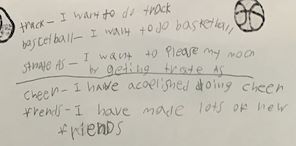 track - I want to do track
bascetball - I want to do basketball
strate As - I want to Please my mom
by geting strate As
cheer - I have acoelished doing cheer
frends - I have made lots of new
friends